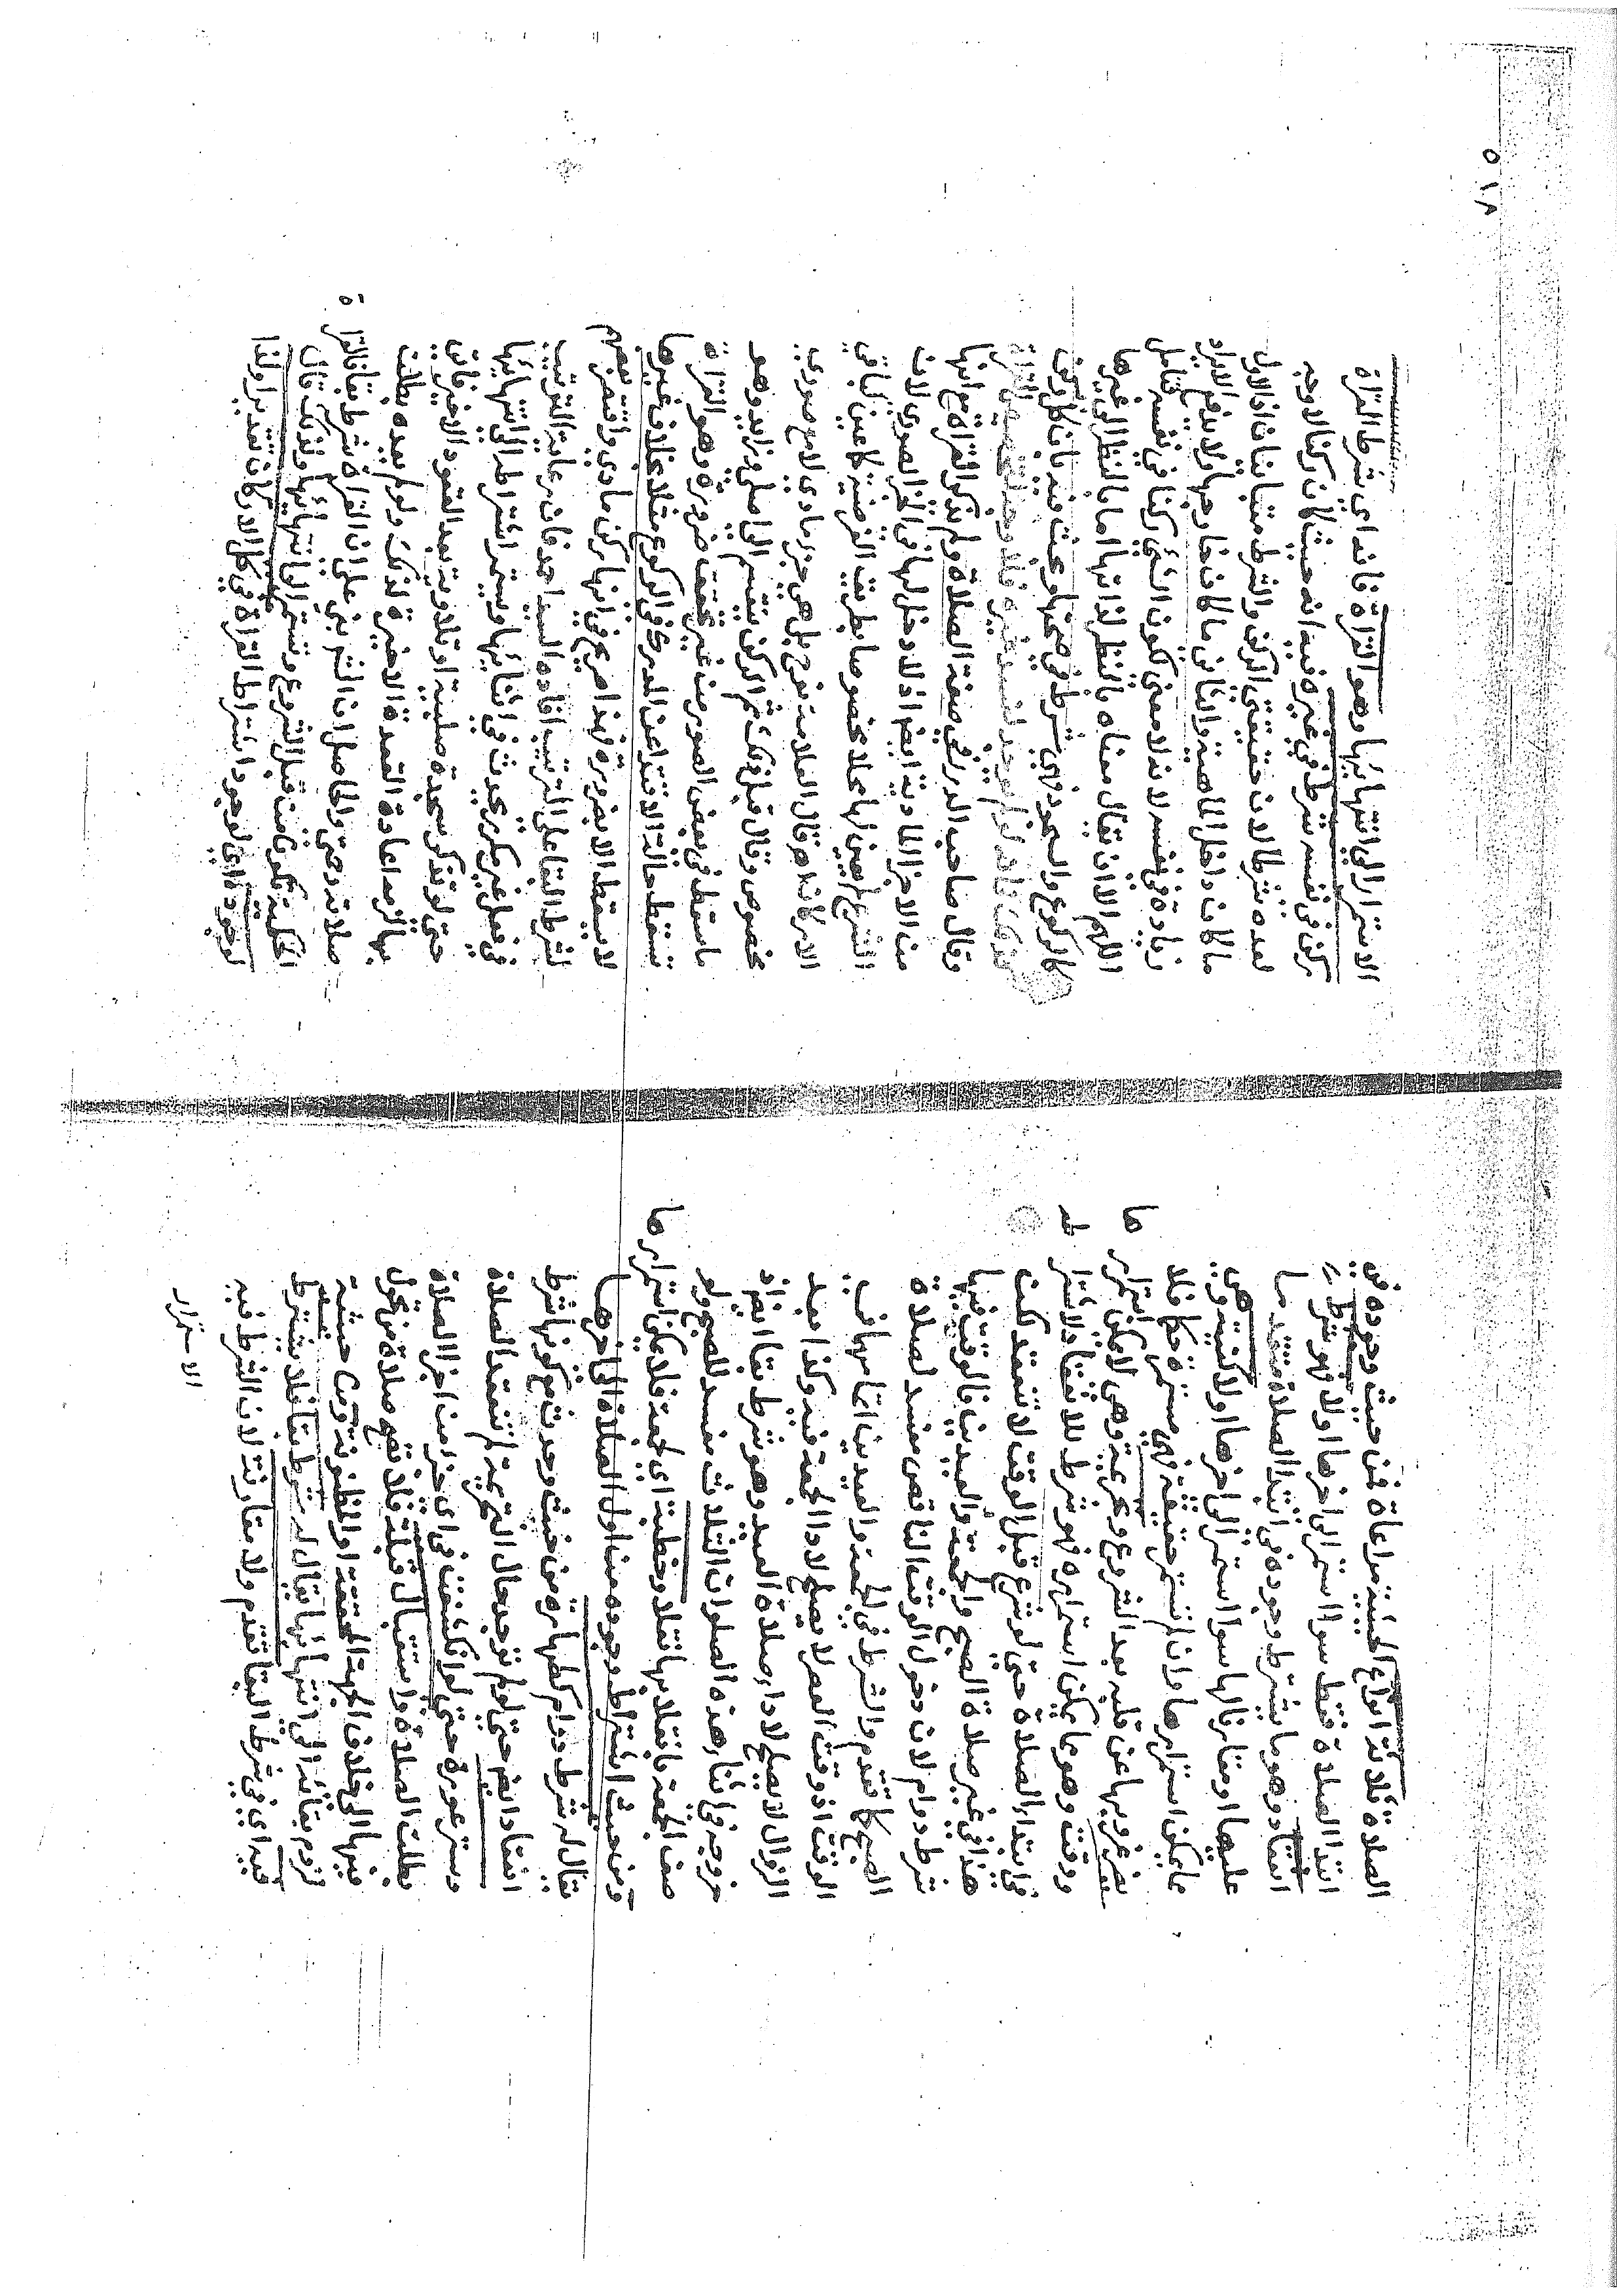 الصلاة ثلاثة انواع الحيثية مراعاة فمن حيث وجوده في
ابتدا الصلاة فقط سوا استمر الى اخرها اولا فهو شرط
انعقاد وهو ما يشترط وجوده في ابتدا الصلاة متقدما
عليها او مقارنا لها سوا استمر الى اخرها اولا كنية وهي
ما يمكن استمرارها وان لم تستمر حقيقة فهي مستمرة حكما فلا
يضر عزوبها عن قلبه بعد الشروع وتحريمة وهي لا يمكن استمرارها
ووقت وهو مما يمكن استمراره فهو شرط للانعقاد لاشتراطه
في ابتداء الصلاة حتى لو شرع قبل الوقت لا تنعقد لكن
هذا في غير صلاة الصبح والجمعة والعيدين فالوقت فيها
شرط دوام لان دخول الوقت الناقص مفسد لصلاة
الصبح كما تقدم والشرط في الجمعة والعيدين اتمامهما في
الوقت اذ وقت العصر لا يصلح لاداء الجمعة فيه وكذا ما بعد
الزوال لا يصلح لاداء صلاة العيد وهو شرط بقا ايضا اذ
خروجه في اثناء هذه الصلوات الثلاث مفسد للصبح
الجمعة بانقلابها نفلا وخطبة اي لجمعة فلا يمكن استمرارها
ومن حيث اشتراط وجوده من اول الصلاة الى اخرها
يقال له شرط دوام كطهارة من خبث وحدث مع كونها شرط
انعقاد ايضا حتى لو لم توجد حال التحريمة لم تنعقد الصلاة
وستر عورة حتى لو انكشفت في اي جزء من اجزا الصلاة
بطلت الصلاة واستقبال قبلة فلا تصح صلاة من تحول
منها الى خلاف الجهة المحققة او المظنونة ومن حيثية
لزوم بقائه الى انتهائها يقال له شرط بقا فلا يشترط
فيه اي في شرط البقا تقدم ولا مقارنة لان الشرط فيه
الاستمرار
الاستمرار الى انتهائها وهو القراة فانه اي شرط القراة
ركن في نفسه شرط في غيره فيه انه حيث كان ركنا لا وجه
لعده شرطا لان حقيقتي الركن والشرط متباينتان اذ الاول
ما كان داخل الماهية والثاني ما كان خارجها ولا يدفع الايراد
زيادة في نفسه لانه لا معنى لكون الشي ركنا في نفسه فتامل
اللهم الا ان يقال معناه بالنظر لذاتها اما بالنظر الى غيرها
كالركوع والسجود فهي شرط في صحتها وبحث فيه بان كل ركن
كذلك فانه اذا لم يوجد لم
وقال صاحب الدرر في صفة الصلاة ولم نذكر القراة مع انها
من الاجزا المادية ايضا اذ لا دخل لها في الجزء الصوري لان
الشرع لم يعين لها محلا مخصوصا بطريق الفرضية كما عين لباقي
الاركان اه قال العلامة نوح بل هي جزء مادي لا مع صوري
مخصوص وقال قبل ذلك ثم الركن ينقسم الى اصلي وزايد وهو
ما سقط في بعض الصور من غير تحقق ضرورة وهو القراة
تسقط حالة الاقتدا عن المدرك في الركوع مثلا بخلاف غيرها
لا يسقط الا بضرورة فهذا صريح في انها ركن مادي واقتصر بعضهم
لشرط البقا على الترتيب افاده السيد احمد فان رعاية الترتيب
في فعل غير مكرر يحدث في اثنائها ويستمر اشتراطه الى انتهائها
حتى لو تذكر سجدة صلبية او تلاوية بعد القعود الاخير
بها لزمه اعادة القعدة الاخيرة لذلك ولو لم يعده بطلت
صلاته والحاصل ان على ان القراة شرط بقا
الحكمية تكون من قبل الشروع وتستمر الى انتهائها ولذلك قال
لوجوده اي لوجود اشتراط القراة في كل الاركان تقديرا ولذا